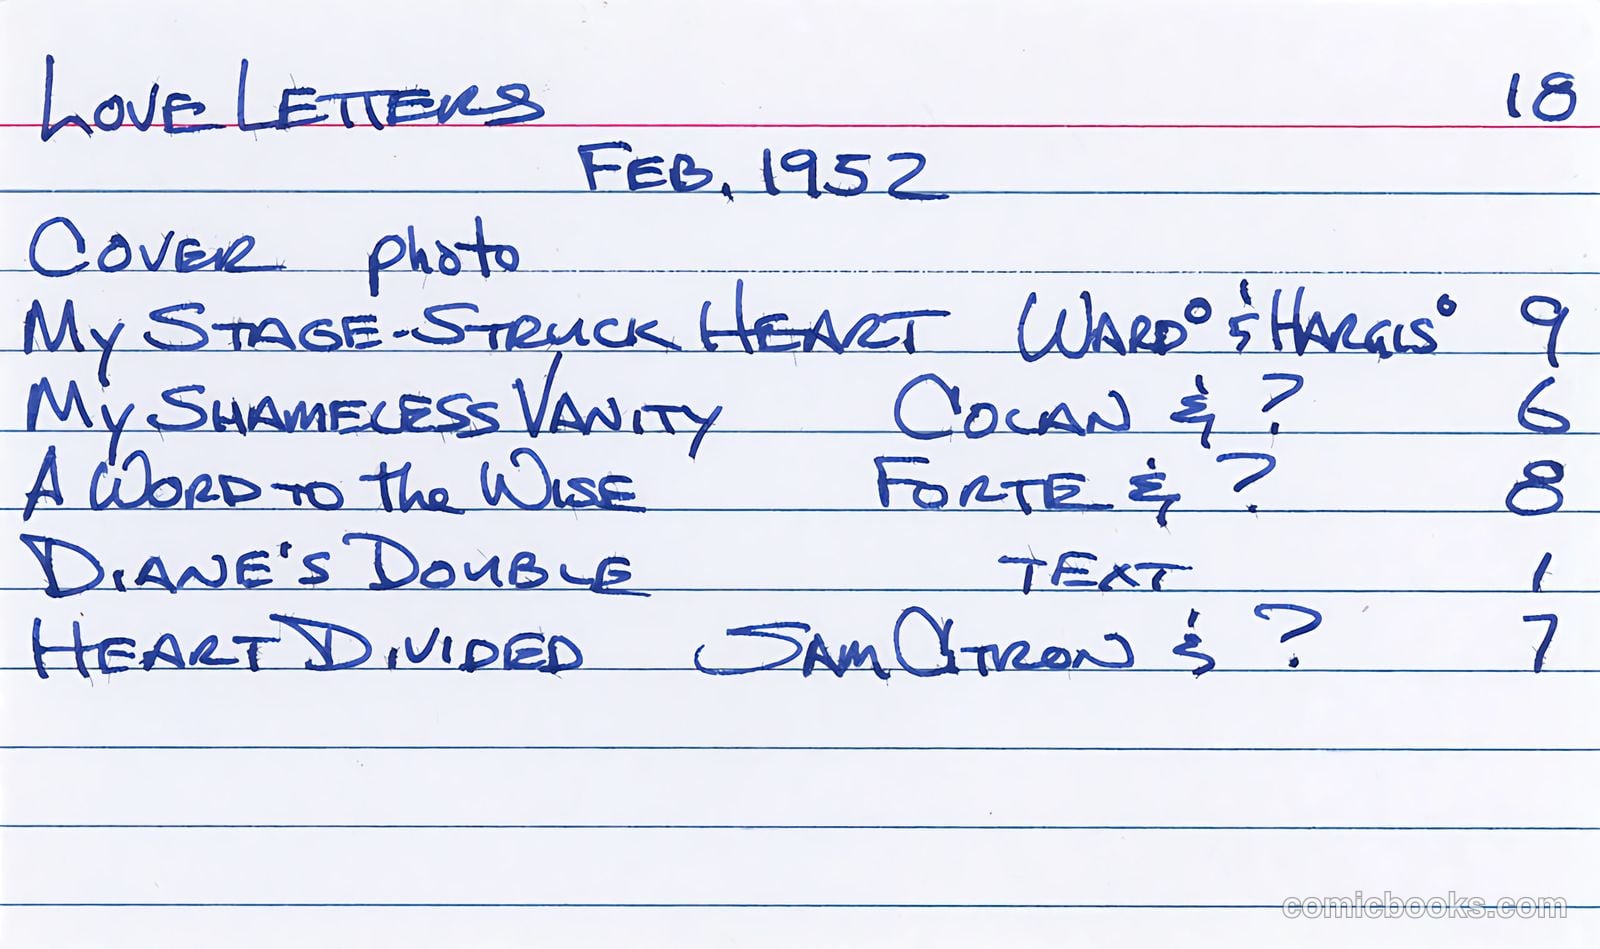 LOVE LETTERS 18
FEB. 1952
COVER photo
MY STAGE-STRUCK HEART WARD° & HARGIS° 9
MY SHAMELESS VANITY COLAN & ? 6
A WORD TO the WISE FORTE & ? 8
DIANE'S DOUBLE TEXT 1
HEART DIVIDED SAM CITRON & ? 7
comicbooks.com